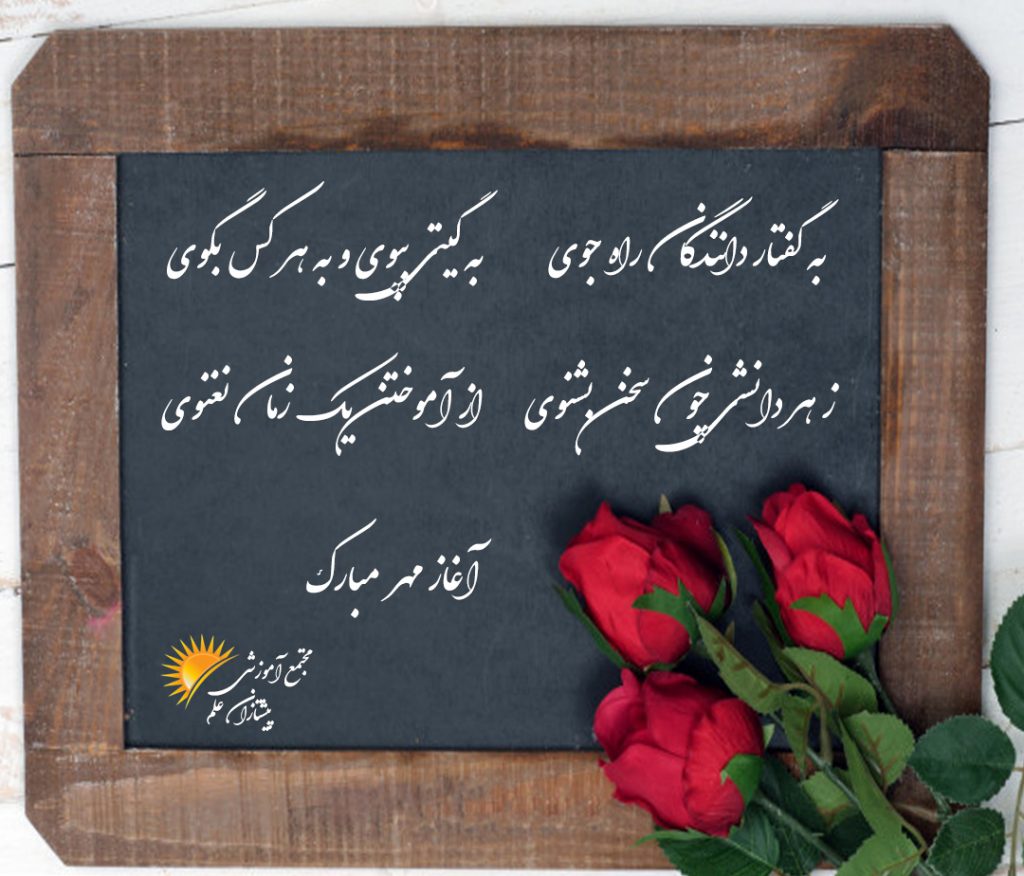 به گفتار دانندگان راه جوی به گیتی بپوی و به هر کس بگوی
ز هر دانشی چون سخن بشنوی از آموختن یک زمان نغنوی
آغاز مهر مبارک
مجتمع آموزشی
پیشتازان علم